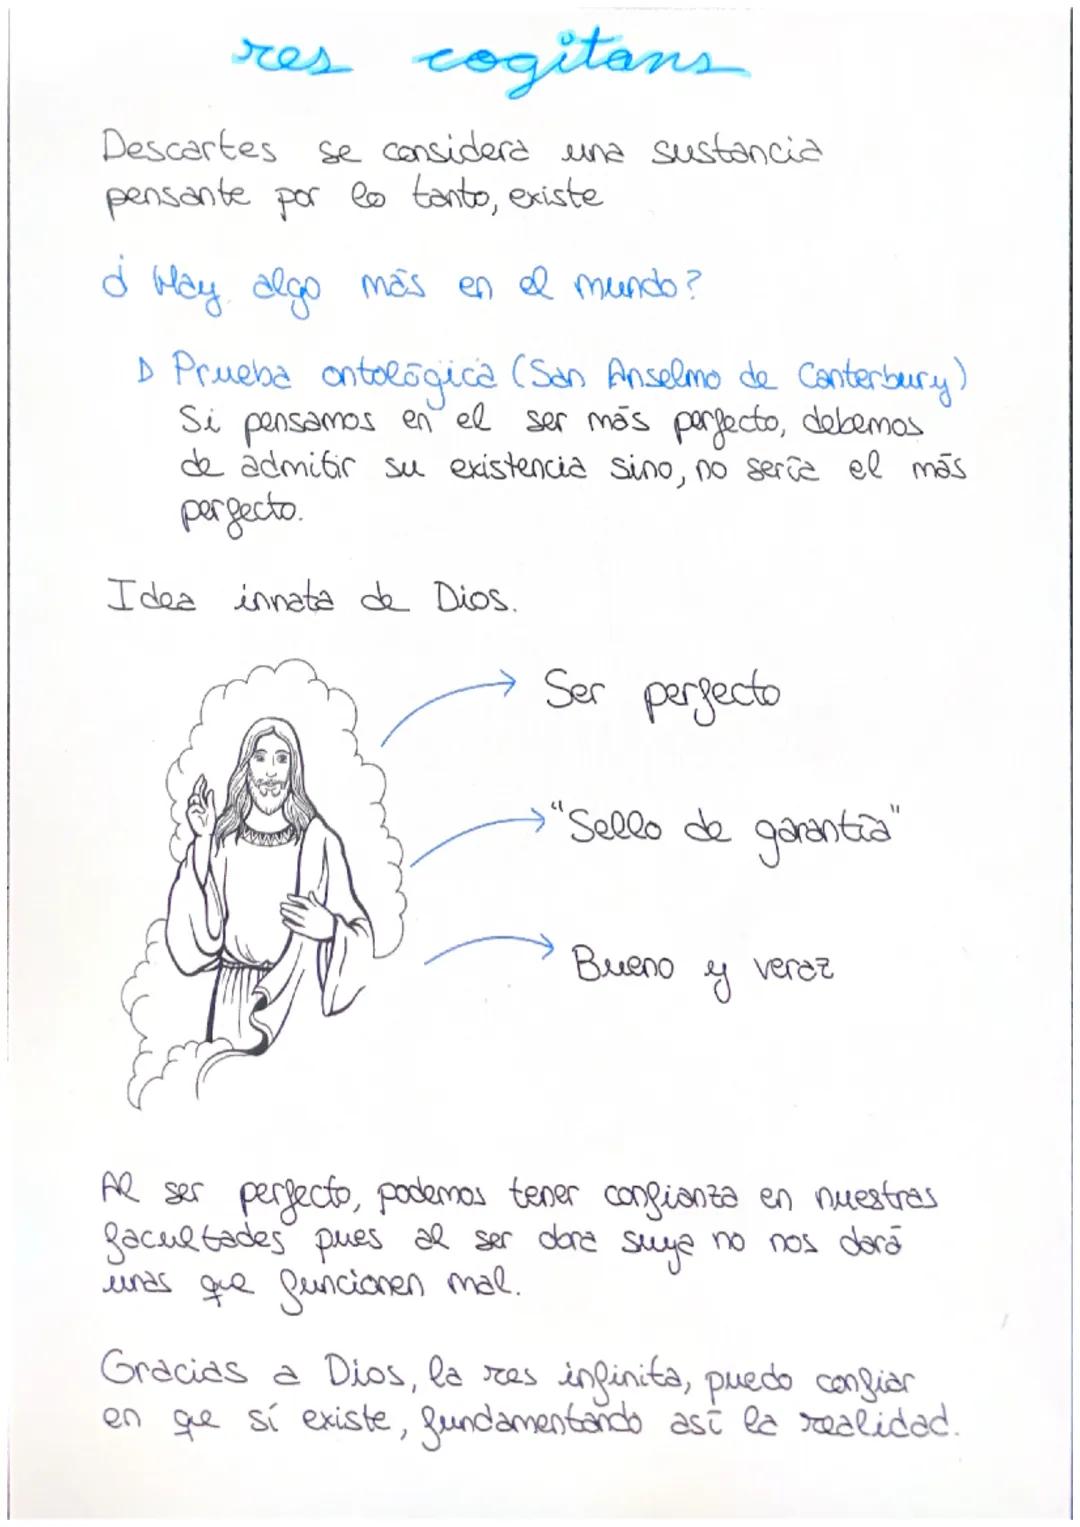 res cogitans
Descartes se considera una sustancia
pensante por lo tanto, existe
¿Hay algo más en el mundo?
▷ Prueba ontológica (San Anselmo de Canterbury)
Si pensamos en el ser más perfecto, debemos
de admitir su existencia sino, no sería el más
perfecto.
Idea innata de Dios.
Ser perfecto
"Sello de garantía"
Bueno y veraz
Al ser perfecto, podemos tener confianza en nuestras
facultades pues al ser obra suya no nos dará
unas que funcionen mal.
Gracias a Dios, la res infinita, puedo confiar
en que sí existe, fundamentando así la realidad.